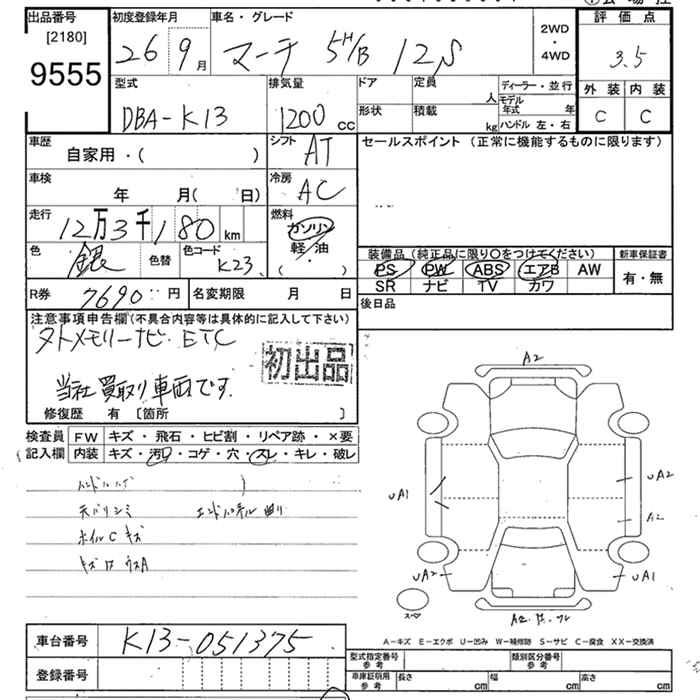 出品番号 [2180] 9555
初度登録年月 26 9月
車名・グレード マーチ 5H/B 12S
2WD・4WD
評価点 3.5
外装 内装
C C
型式 DBA-K13
排気量 1200 cc
ドア 定員 人
形状 積載 kg
ディーラー・並行
モデル年式 年
ハンドル 左・右
車歴 自家用・( )
シフト AT
セールスポイント (正常に機能するものに限ります)
車検 年 月( 日)
冷房 AC
走行 12万3千180km
燃料 ガソリン 軽油 ( ・ )
色 銀 色替 色コード K23
装備品 (純正品に限り○をつけてください)
新車保証書
PS PW ABS エアB AW
SR ナビ TV カワ
有・無
R券 7690円 名変期限 月 日
後日品
注意事項申告欄(不具合内容等は具体的に記入して下さい)
メモリーナビ・ETC
初出品
当社買取り車両です
修復歴 有 [箇所 ]
検査員記入欄
FW キズ・飛石・ヒビ割・リペア跡・×要
内装 キズ・汚れ・コゲ・穴・スレ・キレ・破レ
天バリシミ
ホイルCキズ
A2
uA1
uA2
A2
uA2
uA1
スペア
A−キズ E−エクボ U−凹み W−補修跡 S−サビ C−腐食 XX−交換済
車台番号 K13-051375
登録番号
型式指定番号 参考 類別区分番号 参考
車庫証明用 参考 長さ cm 幅 cm 高さ cm